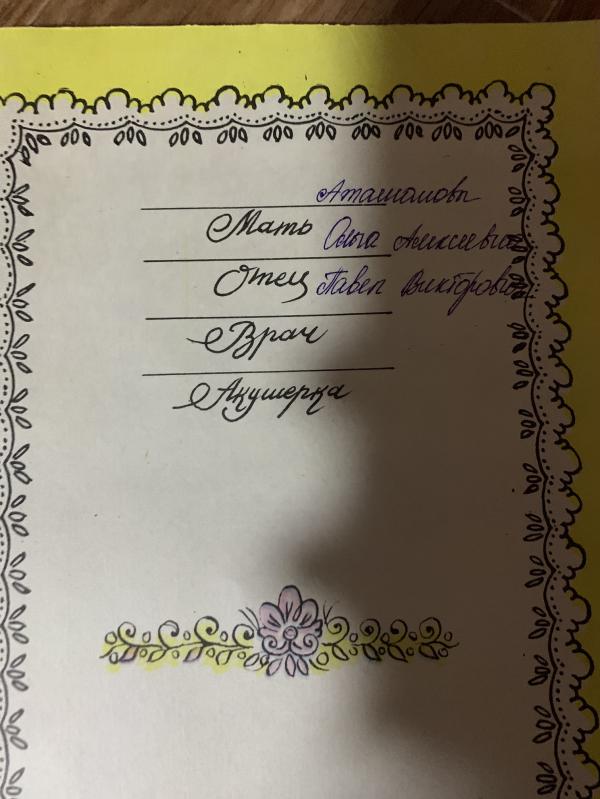 Аташовы
Мать Ольга Алексеевна
Отец Павел Викторович
Врач
Акушерка